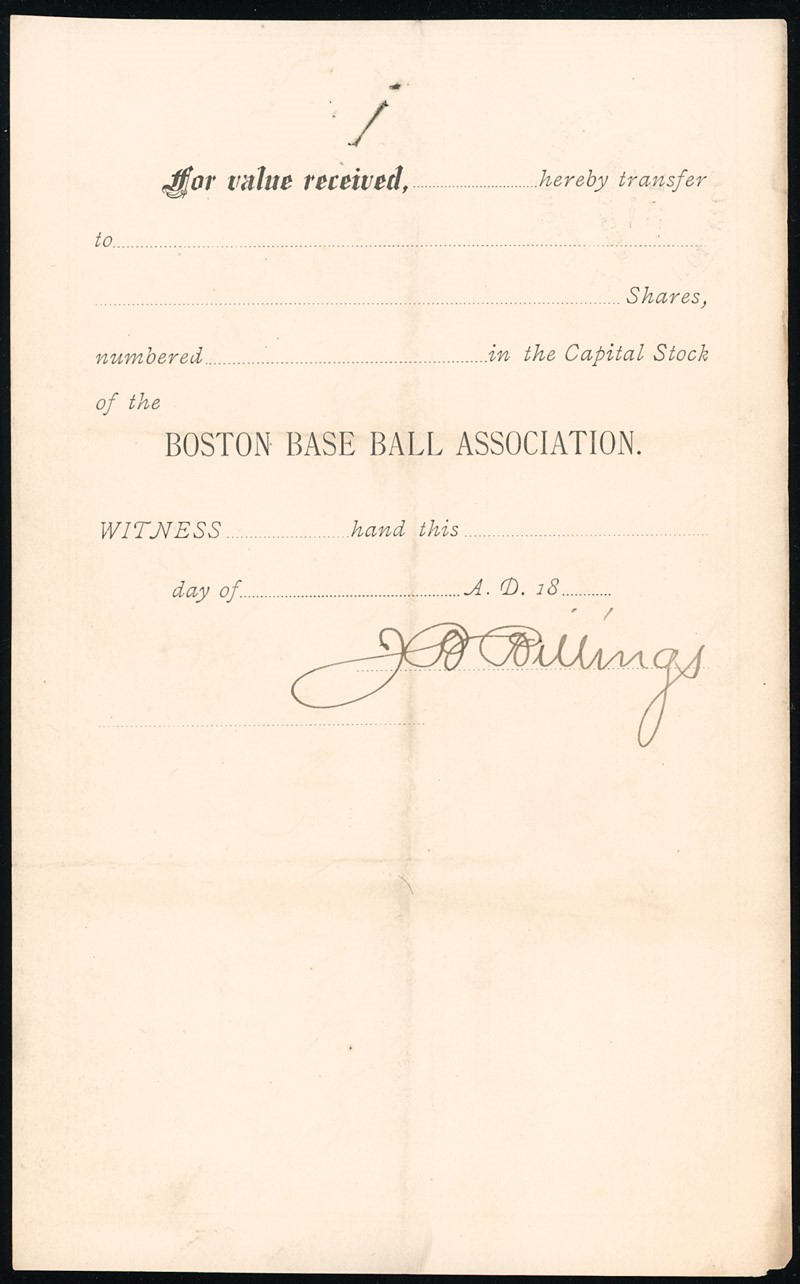 For value received, hereby transfer
to
Shares,
numbered in the Capital Stock
of the
BOSTON BASE BALL ASSOCIATION.
WITNESS hand this
day of A. D. 18
J B Billings